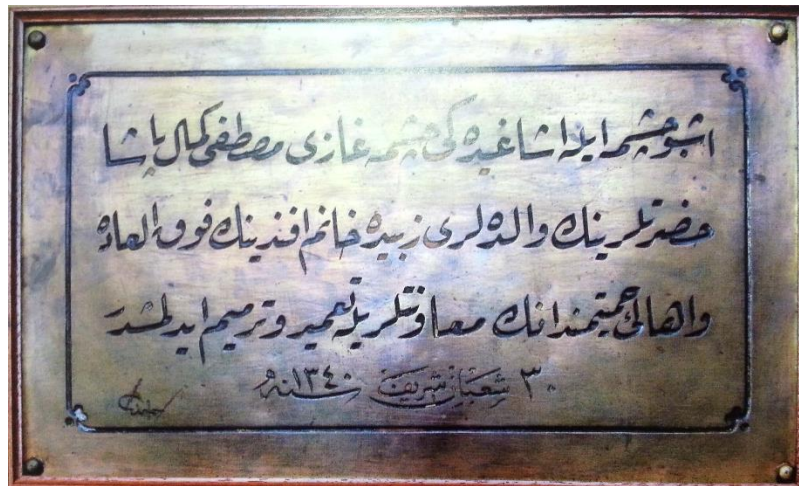 اشبو چشمه ایله اشاغیده کی چشمه غازی مصطفی کمال پاشا
حضرتلرینك والده لری زبیده خانم افندینك فوق العاده
واهالئ حمیتمندانك معاونتلریله تعمیر و ترمیم ایدلمشدر
٣٠ شعبان شریف سنه ١٣٤٠